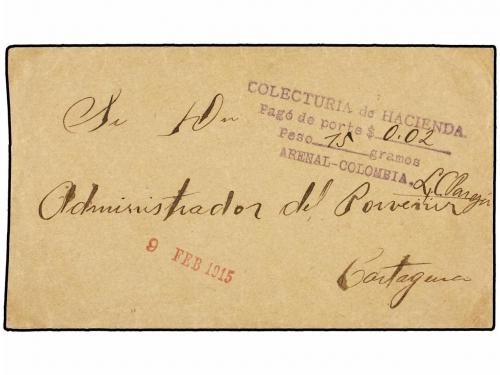 COLECTURIA de HACIENDA.
Pagó de porte $ 0.02
Peso 15 gramos
ARENAL-COLOMBIA,
Sr Dn
Administrador del Porvenir
9 FEB 1915
Cartagena